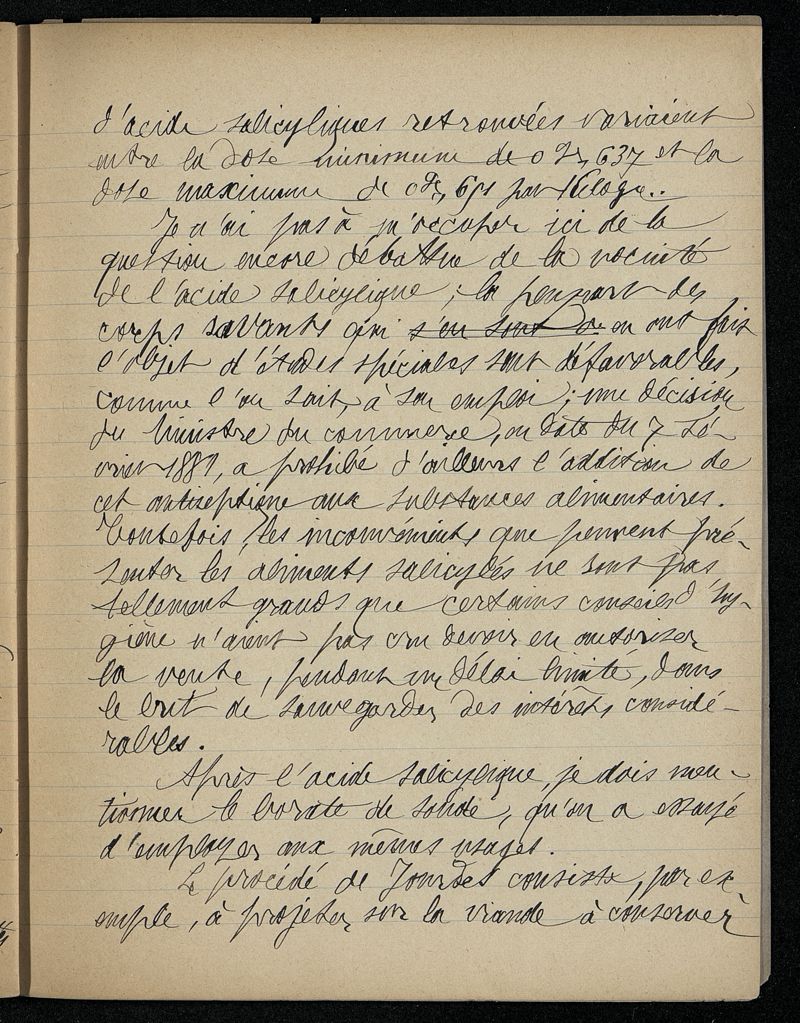 d'acide salicyliques retrouvées variaient
entre la dose minimum de 0 gr, 637 et la
dose maximum de 0 gr, par Kilogr..
Je n'ai pas à m'occuper ici de la
question encore débattue de la nocuité
de l'acide salicylique ; la plupart des
corps savants qui s'en sont en ont fait
l'objet d'études spéciales sont défavorables,
comme l'on sait, à son emploi ; une décision
du Ministre du commerce, en date du 7 Fé-
vrier 1881, a prohibé d'ailleurs l'addition de
cet antiseptique aux substances alimentaires.
Toutefois, les inconvénients que peuvent pré-
senter les aliments salicylés ne sont pas
tellement grands que certains conseils d'hy-
giène n'aient pas cru devoir en autoriser
la vente, pendant un délai limité, dans
le but de sauvegarder des intérêts considé-
rables.
Après l'acide salicylique, je dois men-
tionner le borate de soude, qu'on a essayé
d'employer aux mêmes usages.
Le procédé de Jourdes consiste, par ex-
emple, à projeter sur la viande à conserver